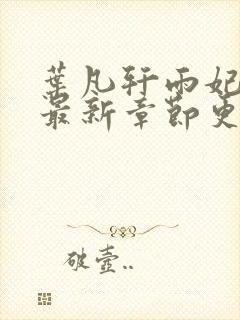 葉凡轩雨妃
最新章節更
破壺..